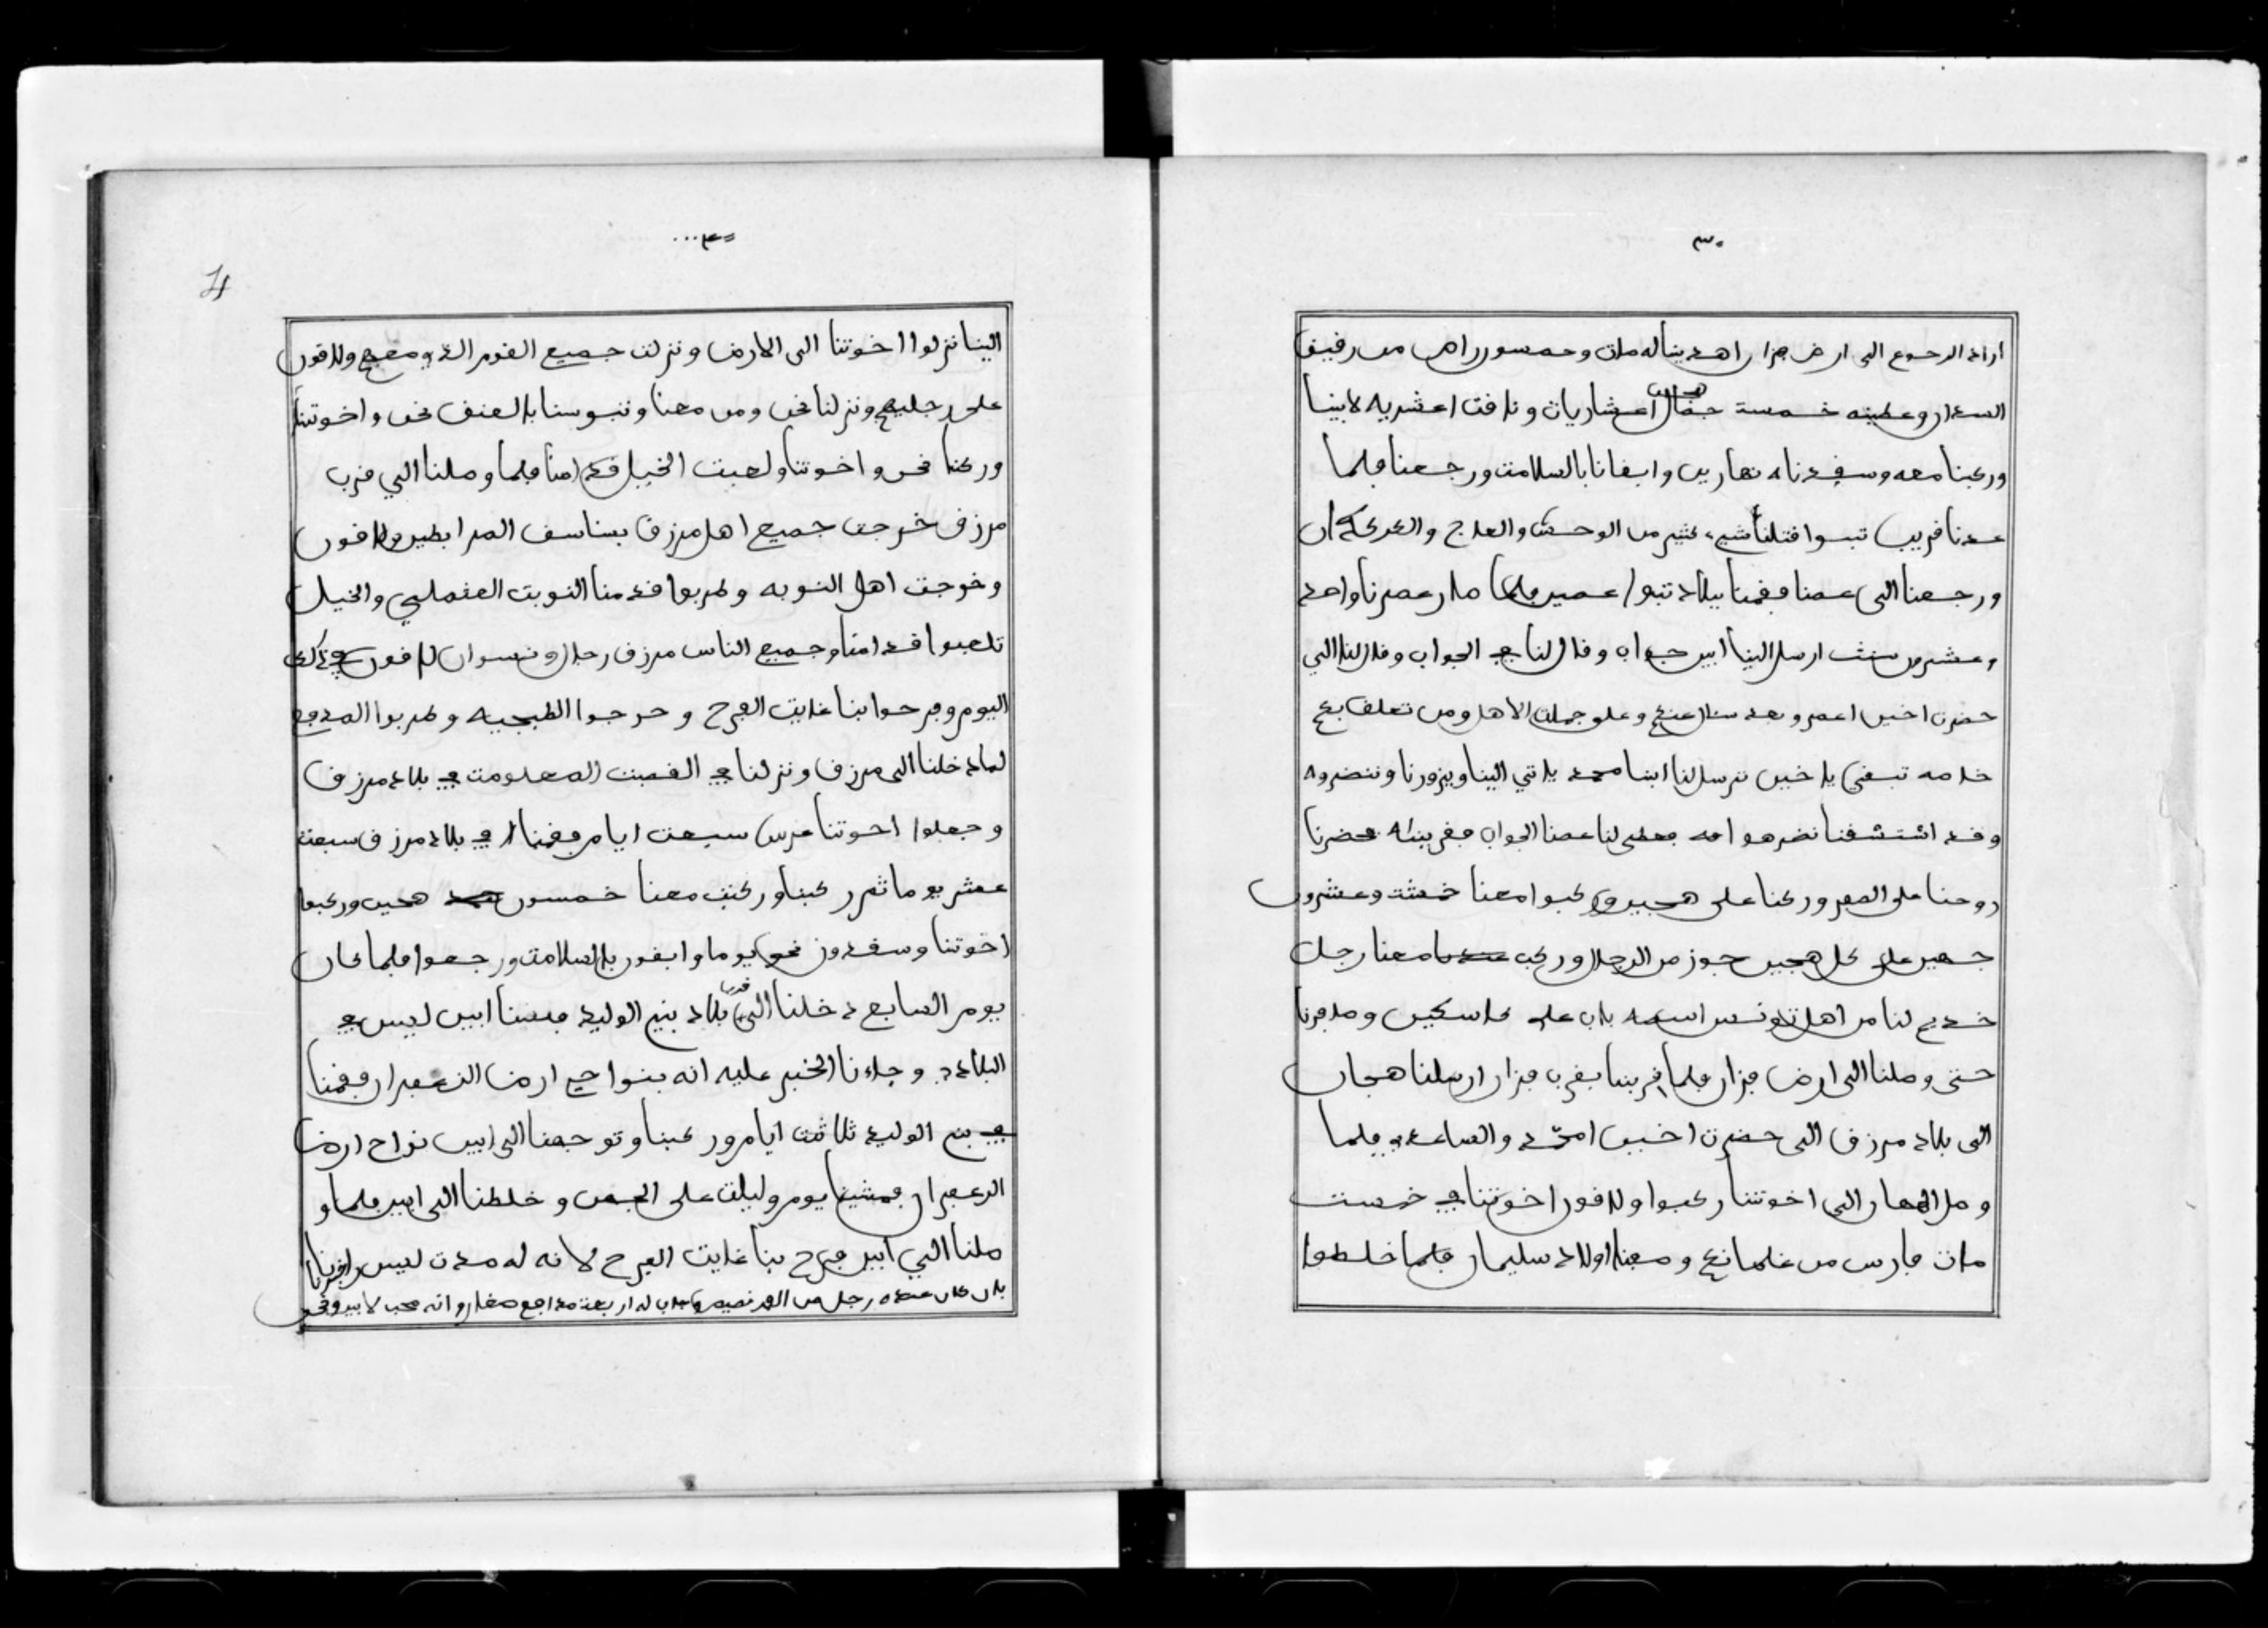 ٣٠
اراد الرجوع الى ارض فزان اهدينا له مات وخمسون راس من رفيق
السودان وعطينه خمسة جمال هجاين اعشاريات وناقت اعشريه لابينا
وركبنا معه وسفدناه نهارين وابقانا بالسلامت ورجعنا فلما
عدنا قريب تبسوا قتلنا شيء كثير من الوحش والعلاج والكركدان
ورجعنا الى عمنا فقمنا ببلاد تبوا عمين فلما صار عمرنا واحد
وعشرون سنت ارسل الينا ابين جواب وقال لنا في الجواب وقال لنا الى
حضرت اخين اعمر وبعد سنال عنكم وعلى جملت الاهل ومن تعلق بكم
خاصه تبقي يا خين ترسل لنا ابنا محمد ياتي الينا ويزورنا وننضروه
وقد اشتشقنا نضرهوا امه بعطى لنا عمنا الجواب فقريناه محضرنا
روحنا على السفر وركبنا على هجين وركبوا معنا خمشت وعشرون
هجين على كل هجين جوز من الرجال وركب معنا رجل
خديم لنا من اهل تونس اسمه باب علي كاسكين وسافرنا
حتى وصلنا الى ارض فزان فلما قربنا بقرب فزان ارسلنا هجان
الى بلاد مرزق الى حضرت اخين امحمد والساعديه فلما
وصل الهجان الى اخوتنا ركبوا ولاقون اخوتنا في خمست
مات فارس من غلمانهم ومعنا اولاد سليمان فلما خلطوا
٤٠
4
الينا نزلوا اخوتنا الى الارض ونزلت جميع القوم الذي معهم ولاقون
على رجليهم ونزلنا نحن ومن معنا ونبوسنا بالعنف نحن واخوتنا
وركبنا نحن واخوتنا ولعبت الخيل قدامنا فلما وصلنا الي قرب
مرزق خرجت جميع اهل مرزق بسناسف المرابطين ولاقون
وخرجت اهل النوبه وضربوا قدمنا النوبت العثملي والخيل
تلعبوا قدامنا وجميع الناس مرزق رجال ونسوان لاقون في ذلك
اليوم وفرحوا بنا غايت الفرح وخرجوا الطبجيه وضربوا المدفع
لما دخلنا الى مرزق ونزلنا في القصبت المعلومت في بلاد مرزق
وجعلوا اخوتنا عرس سبعت ايام فقمنا في بلاد مرزق سبعت
عشر يوما ثم ركبنا وركبت معنا خمسون هجين وركبوا
اخوتنا وسفدون نحو يوما وابقون بالسلامت ورجعوا فلما كان
يوم السابع دخلنا الى قرب بلاد بني الوليد فصبنا ابين ليس في
البلاد وجاءنا الخبر عليه انه بنواحي ارض الزعفران فقمنا
في بني الوليد ثلاثت ايام وركبنا وتوجهنا الى ابين نواح ارض
الزعفران فمشينا يوم وليلت على الهجين وخلطنا الى ابين فلما و
صلنا الي ابين فرح بنا غايت الفرح لانه له مدت ليس رانا
بان كان عنده رجل من الفرنصيص وجاب له اربعت مدافع صغار وانه محب لابين ونحن